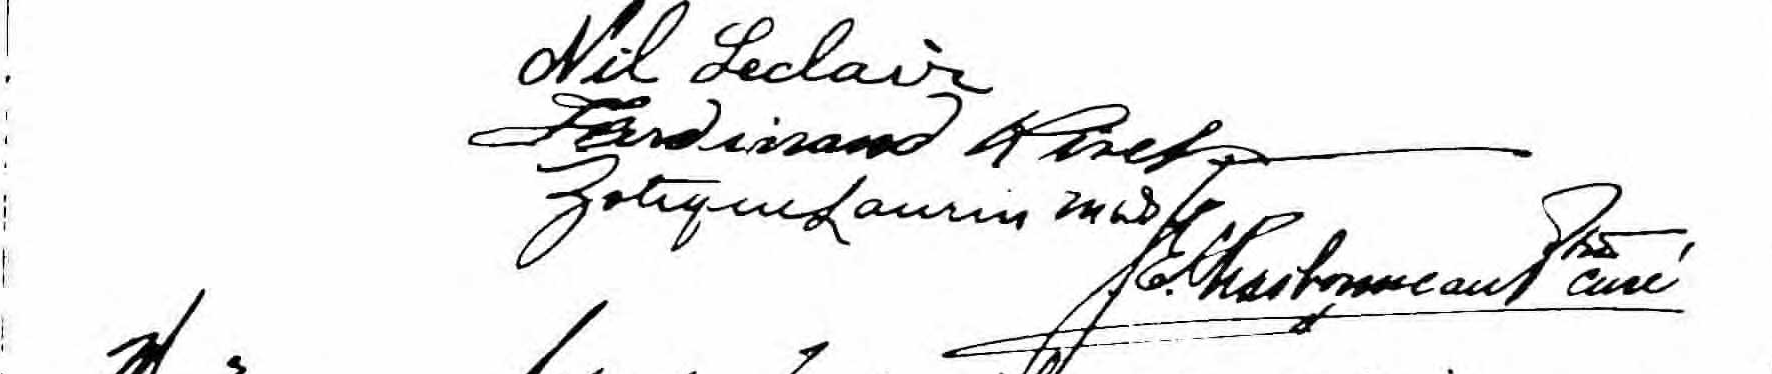 Nil Leclair
Ferdinand Rivet
Zotique Laurin md
J. E. Charbonneau Ptre
curé